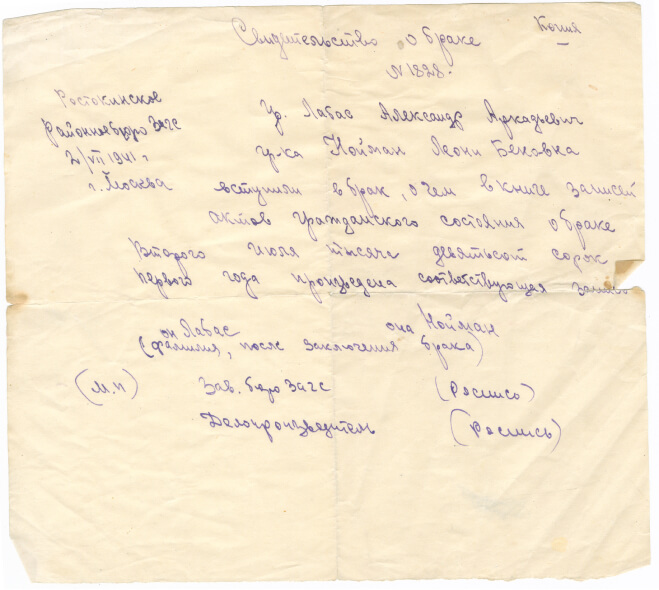 Копия
Свидетельство о браке
N 1828.
Ростокинское
Районное бюро ЗАГС
2/VII 1941 г
г. Москва
Гр. Лабас Александр Аркадьевич
гр-ка Нойман Леони Бековна
вступили в брак, о чем в книге записей
актов гражданского состояния о браке
Второго июля тысяча девятьсот сорок
первого года произведена соответствующая запись
он Лабас она Нойман
(фамилия, после заключения брака)
(м.п) Зав. бюро Загс (Роспись)
Делопроизводитель (Роспись)